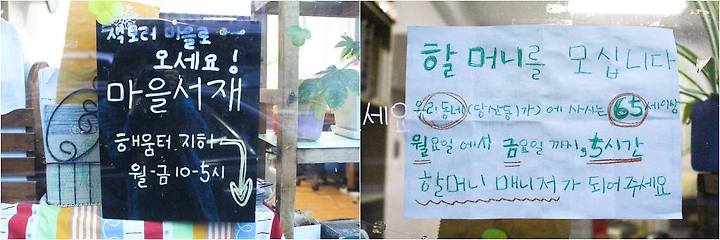 책보러 마을로
오세요!
마을서재
해움터 지하
월-금 10-5시
세요
할머니를 모십니다
우리동네(당산동1가)에 사시는 65세이상
월요일에서 금요일까지, 5시간
할머니 매니저가 되어주세요